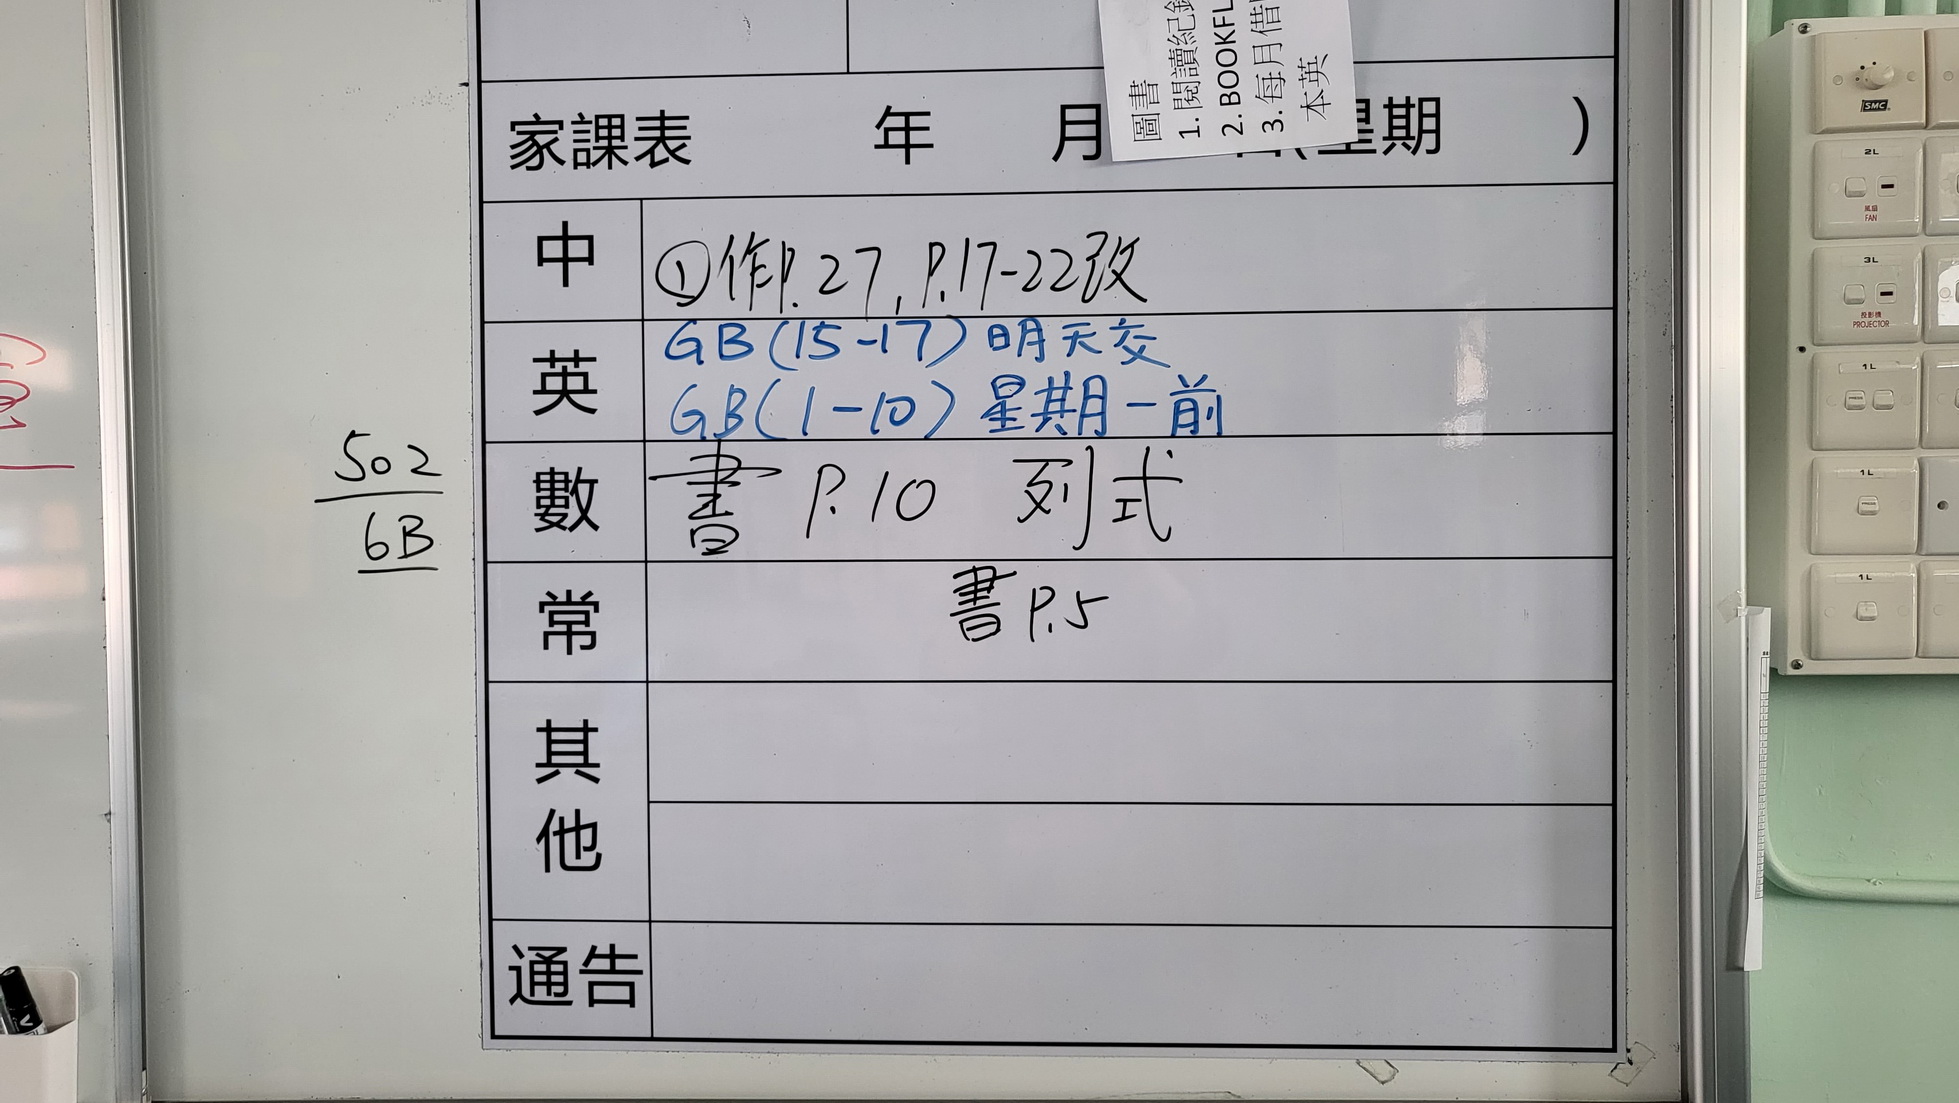 圖書
1. 閱讀紀錄
2. BOOKFL
3. 每月借
本英
家課表 年 月 日(星期 )
中 ①作P.27, P.17-22改
英 GB(15-17)明天交
GB(1-10)星期一前
數 書 P.10 列式
常 書P.5
其他
通告
502
6B
SMC
2L
風扇
FAN
3L
投影機
PROJECTOR
1L
PRESS PRESS
1L
PRESS
1L